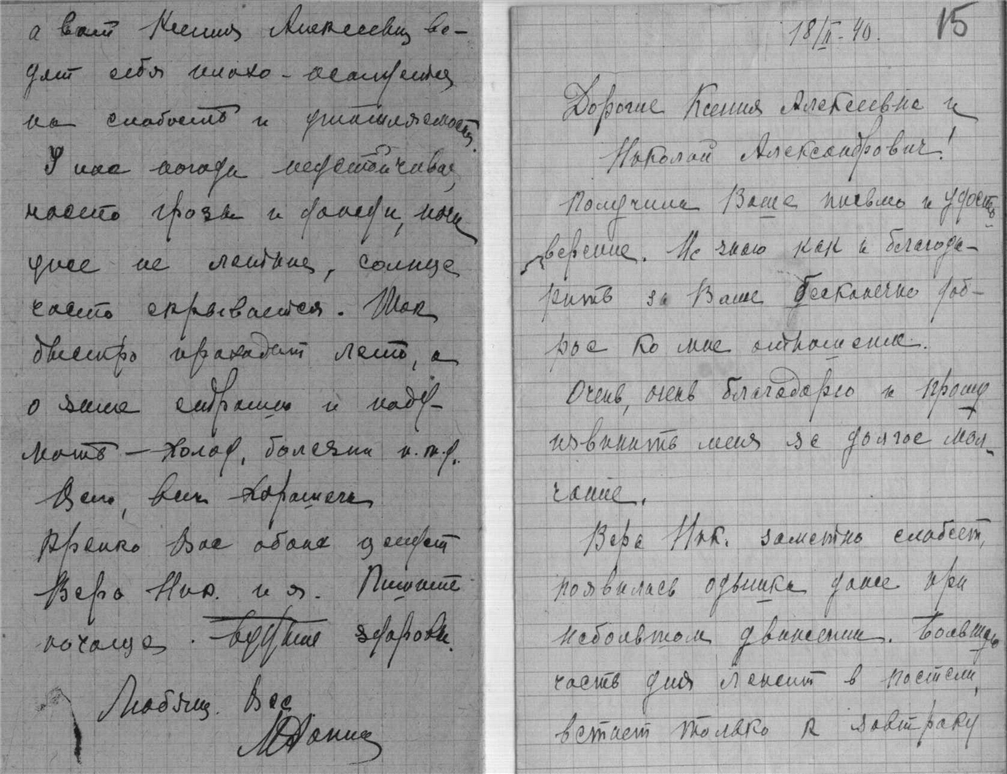 а вот Ксения Алексеевна во-
дит себя плохо – жалуется
на слабость и утомляемость.
У нас погода неустойчивая,
часто грозы и дожди, ночи
уже не летние, солнце
часто скрывается. Так
быстро проходит лето, а
о зиме страшно и поду-
мать – холод, болезни и.т.д.
Всего, всего хорошего
Крепко Вас обоих целуем
Вера Ник. и я. Пишите
почаще. Будьте здоровы.
Любящ. Вас
15
18/II-40.
Дорогие Ксения Алексеевна и
Николай Александрович!
Получила Ваше письмо и удосто-
верение. Не знаю как и благода-
рить за Ваше бесконечно доб-
рое ко мне отношение.
Очень, очень благодарю и прошу
извинить меня за долгое мол-
чание.
Вера Ник. заметно слабеет,
появилась одышка даже при
небольшом движении. Большую
часть дня лежит в постели,
встает только к завтраку